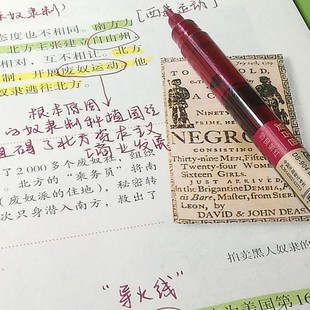 奴隶制）
[西进运动]
态度也不相同。南方力
北方主张建立自由州
相对，互不相让。北方
制，开展废奴运动，他
奴隶逃往北方。
根本原因
奴隶制种植园经
阻碍了北方资本主义
工商业发展
了2000多个废奴社，组织
。北方的“乘务员”将南
（废奴派的住地），秘密转
次只身潜入南方，救出了
TO
NINETY
PRIME, HE
NEGRO
CONSISTING
Thirty-nine Men, Fifteen
Twenty-four Women,
Sixteen Girls.
JUST ARRIVED,
In the Brigantine DEMBIA,
Bare, Master, from SIER
LEON, by
DAVID & JOHN DEAS
拍卖黑人奴隶的
“导火线”
为美国第16